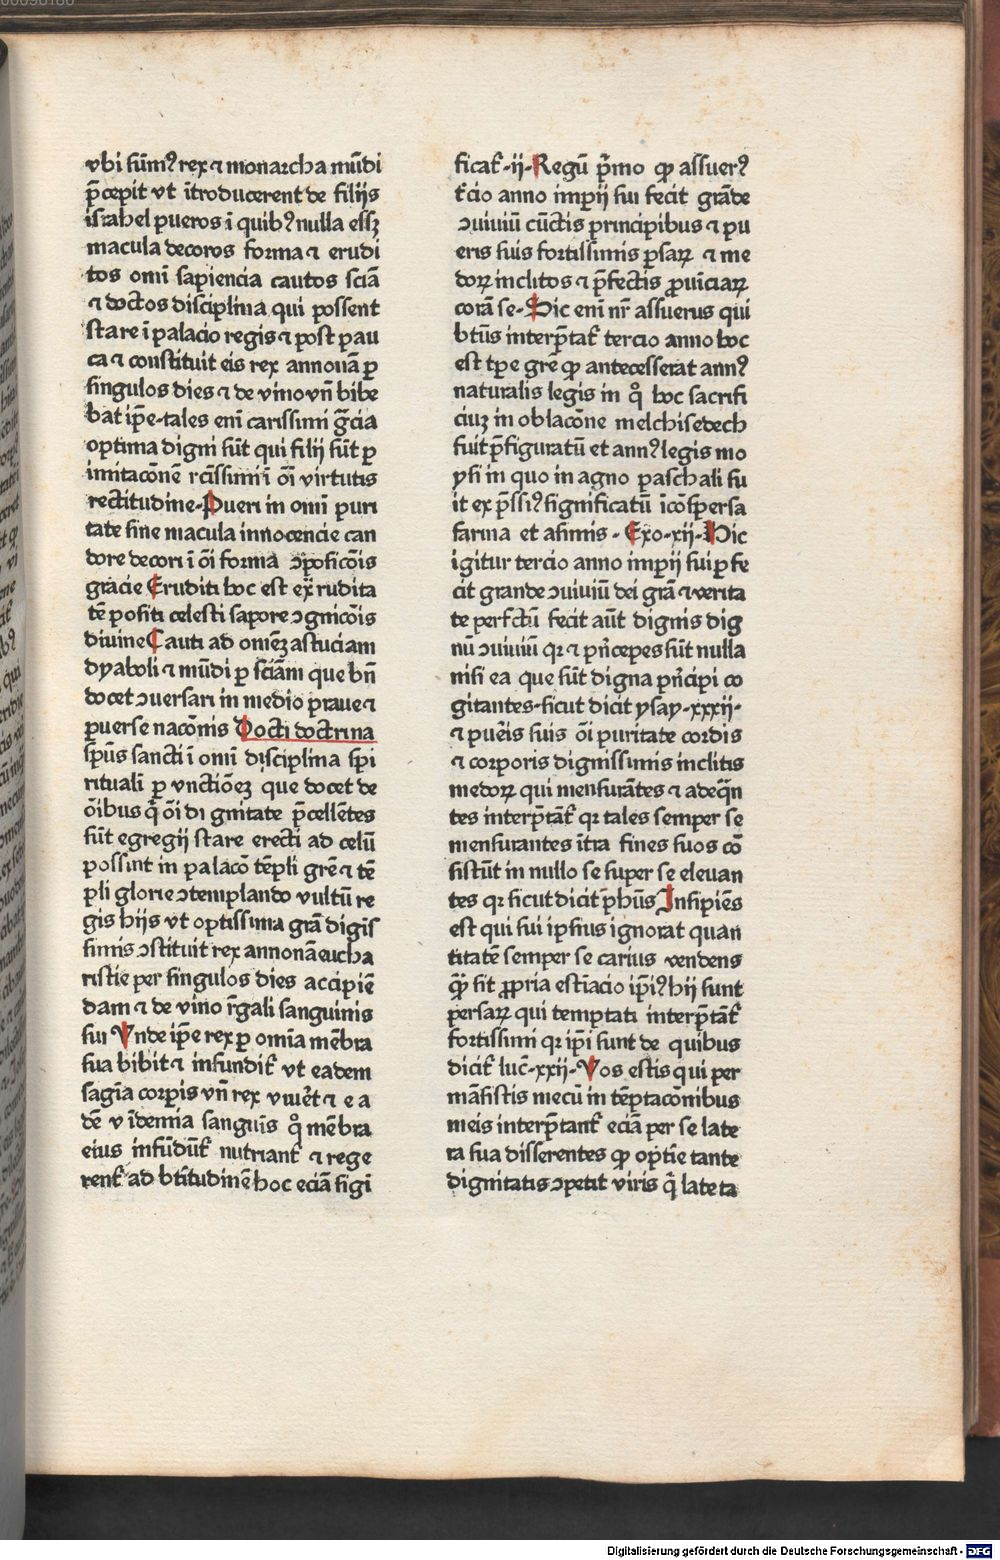 vbi sūmꝰ rex ⁊ monarcha mūdi
p̄cepit vt ītroducerent de filijs
israhel pueros ī quibꝰ nulla essꝫ
macula decoros forma ⁊ erudi
tos omī sapiencia cautos sciā
⁊ doctos disciplina qui possent
stare ī palacio regis ⁊ post pau
ca ⁊ constituit eis rex annonā ꝑ
singulos dies ⁊ de vino vn̄ bibe
bat ip̄e-tales enī carissimi gr̄cia
optima digni sūt qui filij sūt ꝑ
imitacōnē rc̄issimi ī oī virtutis
rectitudine-Pueri in omī puri
tate sine macula innocencie can
dore decori ī oī forma ↄposicōis
gracie Eruditi hoc est ex̄ rudita
tē positi celesti sapore ↄgnicōis
diuine Cauti ad omnēꝫ astuciam
dyaboli ⁊ mūdi ꝑ sciām que bn̄
docet ↄuersari in medio praue ⁊
ꝑuerse nacōnis Docti doctrina
sp̄us sancti ī omī disciplina spi
rituali ꝑ vnctiōeꝫ que docet de
ōibus q̄ oī di gnitate p̄cellētes
sūt egregij stare erecti ad celū
possint in palacō tēpli grē ⁊ tē
pli glorie ↄtemplando vultū re
gis hijs vt optissima grā digis
simis ↄstituit rex annonā eucha
ristie per singulos dies accipiē
dam ⁊ de vino r̄gali sanguinis
sui Vnde ip̄e rex ꝑ omīa mēbra
sua bibit ⁊ infundit᷑ vt eadem
sagīa corpis vn̄ rex viuēt ⁊ e a
dē v īdemia sanguīs q̄ mēbra
eius infūdūt᷑ nutriant᷑ ⁊ rege
rent᷑ ad btītudinē hoc eciā figi
ficat᷑-ij-Regū p̄mo ꝙ assuerꝰ
t᷑cio anno imꝑij sui fecit grāde
ↄuiuiū cūctis principibus ⁊ pu
eris suis fortissimis ꝑsaꝝ ⁊ me
doꝝ inclitos ⁊ p̄fectis ꝓuīciaꝝ
corā se-Hic enī nr̄ assuerus qui
btūs interp̄tat᷑ tercio anno hoc
est tꝑe grē ꝙ antecesserat annꝰ
naturalis legis in q̄ hoc sacrifi
ciuꝫ in oblacōne melchisedech
fuit p̄figuratū et annꝰ legis mo
ysi in quo in agno paschali fu
it ex p̄ssiꝰ significatū ī cōsꝑersa
farina et asimis-Exo-xij-Hic
igitur tercio anno imꝑij sui ꝑ fe
cit grande ↄuiuiū dei grā ⁊ verita
te perfctū fecit aūt dignis dig
nū ↄuiuiū qꝛ ⁊ pn̄cepes sūt nulla
nisi ea que sūt digna pn̄cipi co
gitantes-sicut dicit ysay-xxxij-
⁊ puēis suis oī puritate cordis
⁊ corporis dignissimis inclitis
medoꝝ qui mensurātes ⁊ adeq̄n
tes interp̄tāt᷑ qꝛ tales semper se
mensurantes ītra fines suos cō
sistūt in nullo se super se eleuan
tes qꝛ sicut dicit ꝓhūs Insipiēs
est qui sui ipsius ignorat quan
titatē semper se carius vendens
ꝙ̄ sit ꝓpria estīacio ip̄iꝰ hij sunt
persaꝝ qui temptati interp̄tāt᷑
fortissimi qꝛ ip̄i sunt de quibus
dicit᷑ luc̄-xxij-Vos estis qui per
māsistis mecū in tēptacōnibus
meis interp̄tant᷑ eciā per se late
ra sua disserentes ꝙ optīe tante
dignitatis ↄpetit viris q̄ lateta
Digitalisierung gefördert durch die Deutsche Forschungsgemeinschaft - DFG